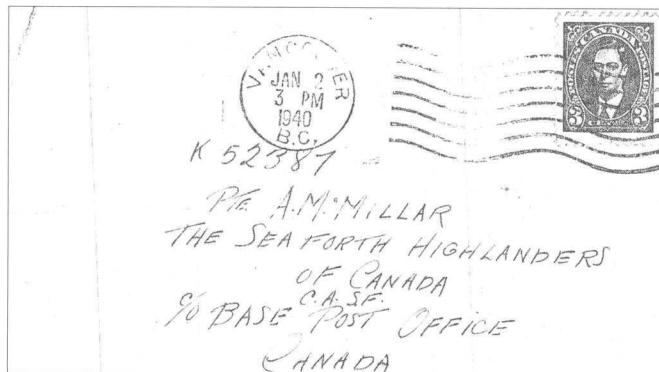 VANCOUVER
JAN 2
3 PM
1940
B.C.
POSTES CANADA POSTAGE
3 CENTS 3
K 52387
Pte. A. McMILLAR
THE SEAFORTH HIGHLANDERS
OF CANADA
C.A.S.F.
c/o BASE POST OFFICE
CANADA